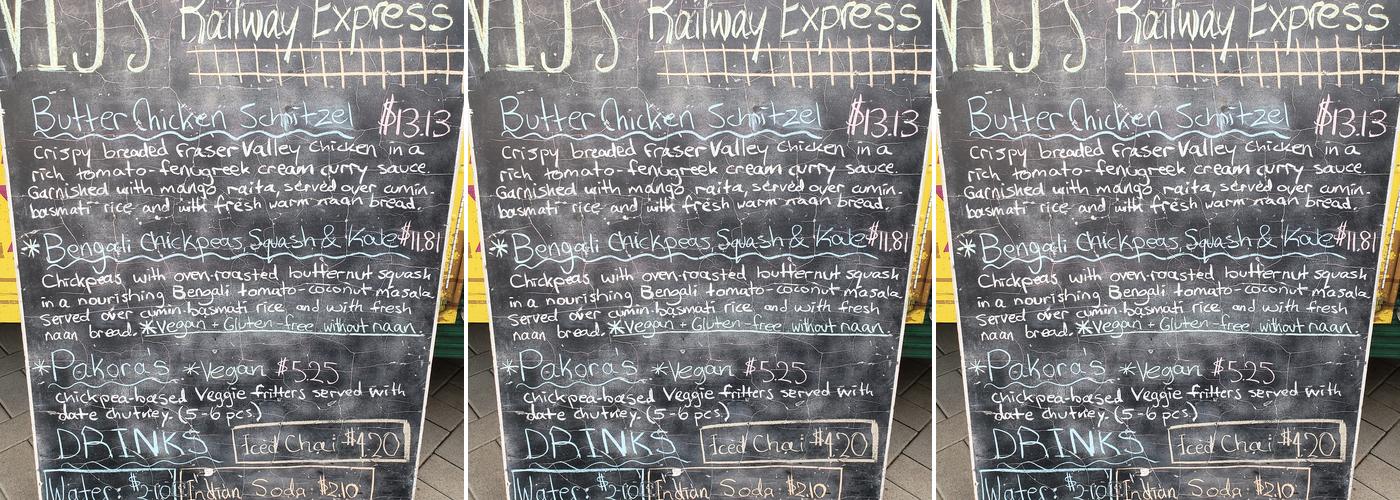 VIJ'S Railway Express
Butter Chicken Schnitzel $13.13
Crispy breaded Fraser Valley Chicken in a
rich tomato-fenugreek cream curry sauce.
Garnished with mango raita, served over cumin-
basmati rice and with fresh warm naan bread.
*Bengali Chickpeas, Squash & Kale $11.81
Chickpeas with oven-roasted butternut squash
in a nourishing Bengali tomato-coconut masala
served over cumin-basmati rice and with fresh
naan bread. *Vegan + Gluten-free without naan.
*Pakora's *Vegan $5.25
chickpea-based Veggie fritters served with
date chutney. (5-6 pcs.)
DRINKS Iced Chai $4.20
Water: $2.10 Indian Soda: $2.10
VIJ'S Railway Express
Butter Chicken Schnitzel $13.13
Crispy breaded Fraser Valley Chicken in a
rich tomato-fenugreek cream curry sauce.
Garnished with mango raita, served over cumin-
basmati rice and with fresh warm naan bread.
*Bengali Chickpeas, Squash & Kale $11.81
Chickpeas with oven-roasted butternut squash
in a nourishing Bengali tomato-coconut masala
served over cumin-basmati rice and with fresh
naan bread. *Vegan + Gluten-free without naan.
*Pakora's *Vegan $5.25
chickpea-based Veggie fritters served with
date chutney. (5-6 pcs.)
DRINKS Iced Chai $4.20
Water: $2.10 Indian Soda: $2.10
VIJ'S Railway Express
Butter Chicken Schnitzel $13.13
Crispy breaded Fraser Valley Chicken in a
rich tomato-fenugreek cream curry sauce.
Garnished with mango raita, served over cumin-
basmati rice and with fresh warm naan bread.
*Bengali Chickpeas, Squash & Kale $11.81
Chickpeas with oven-roasted butternut squash
in a nourishing Bengali tomato-coconut masala
served over cumin-basmati rice and with fresh
naan bread. *Vegan + Gluten-free without naan.
*Pakora's *Vegan $5.25
chickpea-based Veggie fritters served with
date chutney. (5-6 pcs.)
DRINKS Iced Chai $4.20
Water: $2.10 Indian Soda: $2.10